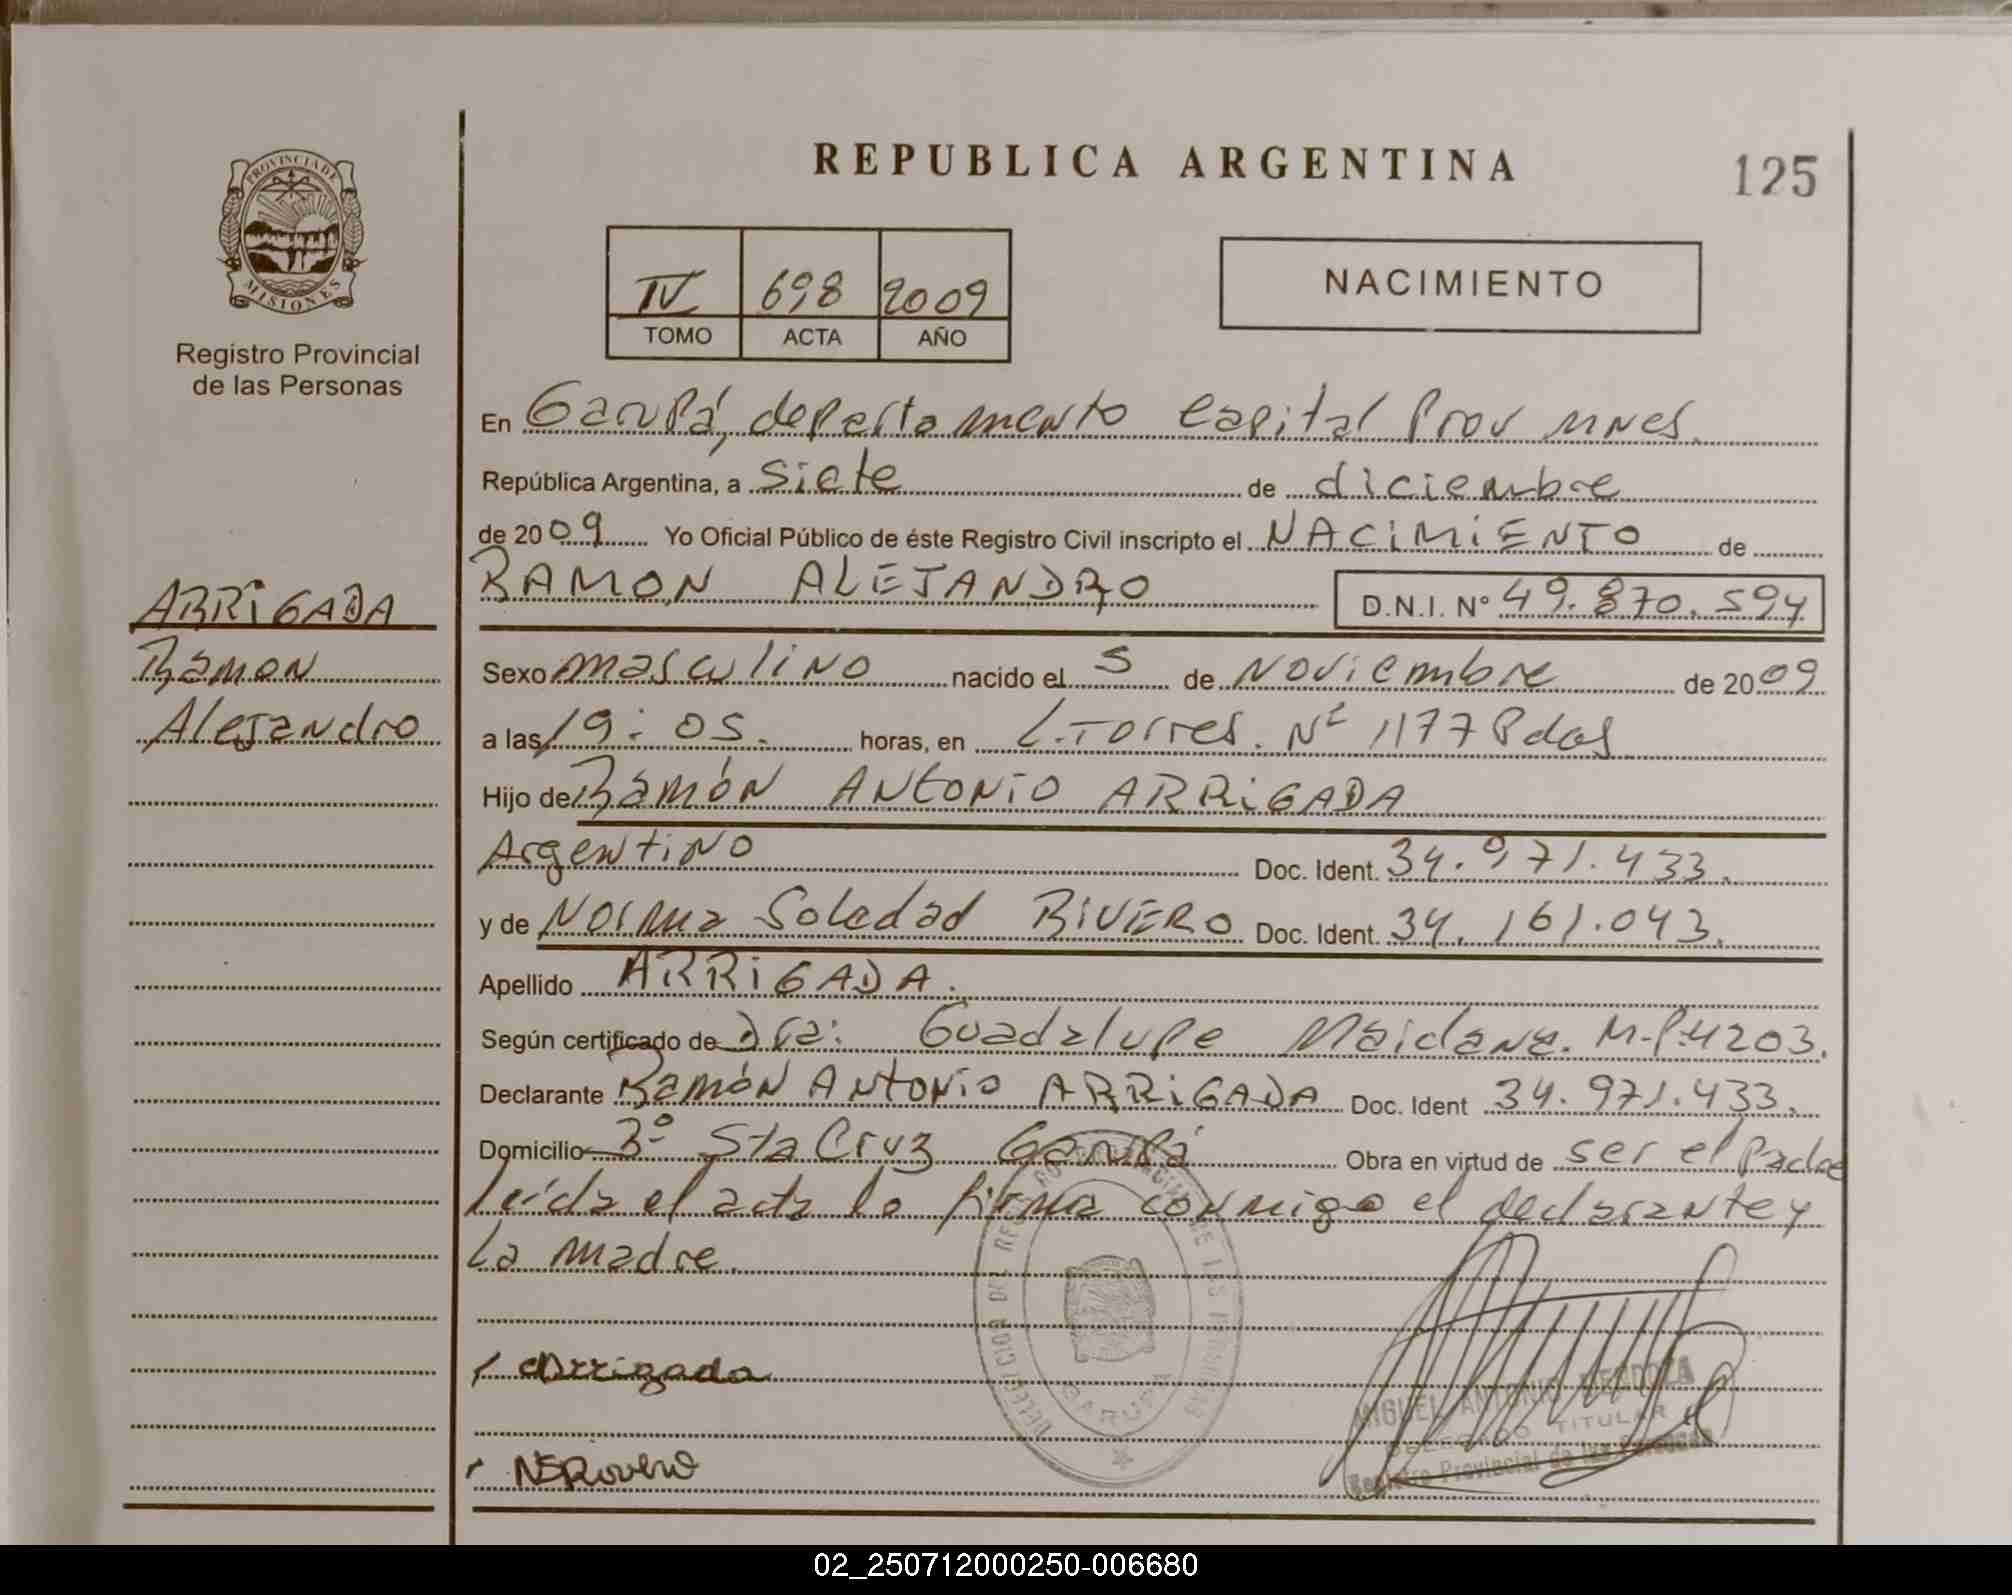 REPUBLICA ARGENTINA
125
PROVINCIA DE
MISIONES
Registro Provincial
de las Personas
IV 698 2009
TOMO ACTA AÑO
NACIMIENTO
En Garupá, departamento Capital Prov Mnes.
República Argentina, a siete de diciembre
de 2009 Yo Oficial Público de éste Registro Civil inscripto el NACIMIENTO de
RAMON ALEJANDRO D.N.I. Nº 49.870.594
ARRIGADA
Ramon
Alejandro
Sexo masculino nacido el 5 de Noviembre de 2009
a las 19:05. horas, en L. Torres. Nº 1177 Pdas
Hijo de Ramón Antonio ARRIGADA
Argentino Doc. Ident. 34.971.433.
y de Norma Soledad RIVERO Doc. Ident. 34.161.043.
Apellido ARRIGADA.
Según certificado de Dra: Guadalupe Maidana. M.P.4203.
Declarante Ramón Antonio ARRIGADA Doc. Ident 34.971.433.
Domicilio Bº Sta Cruz Garupá Obra en virtud de ser el Padre
leída el acta la firma conmigo el declarante y
la madre.
Arrigada
NSRivero
DELEGACION DEL REGISTRO PROVINCIAL DE LAS PERSONAS
GARUPA
MIGUEL ANTONIO MENDOZA
DELEGADO TITULAR
Registro Provincial de las Personas
02_250712000250-006680